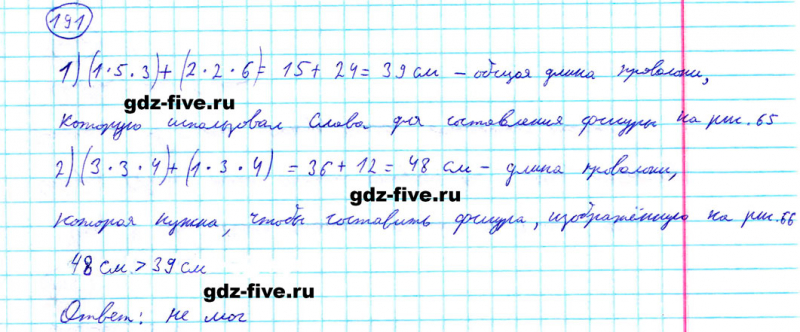 191
1) (1·5·3)+(2·2·6)= 15+24= 39 см – общая длина проволоки,
gdz-five.ru
которую использовал Слава для составления фигуры на рис. 65
2) (3·3·4)+(1·3·4) = 36+12= 48 см – длина проволоки,
gdz-five.ru
которая нужна, чтобы составить фигура, изображённую на рис. 66
48 см > 39 см
gdz-five.ru
Ответ: не мог